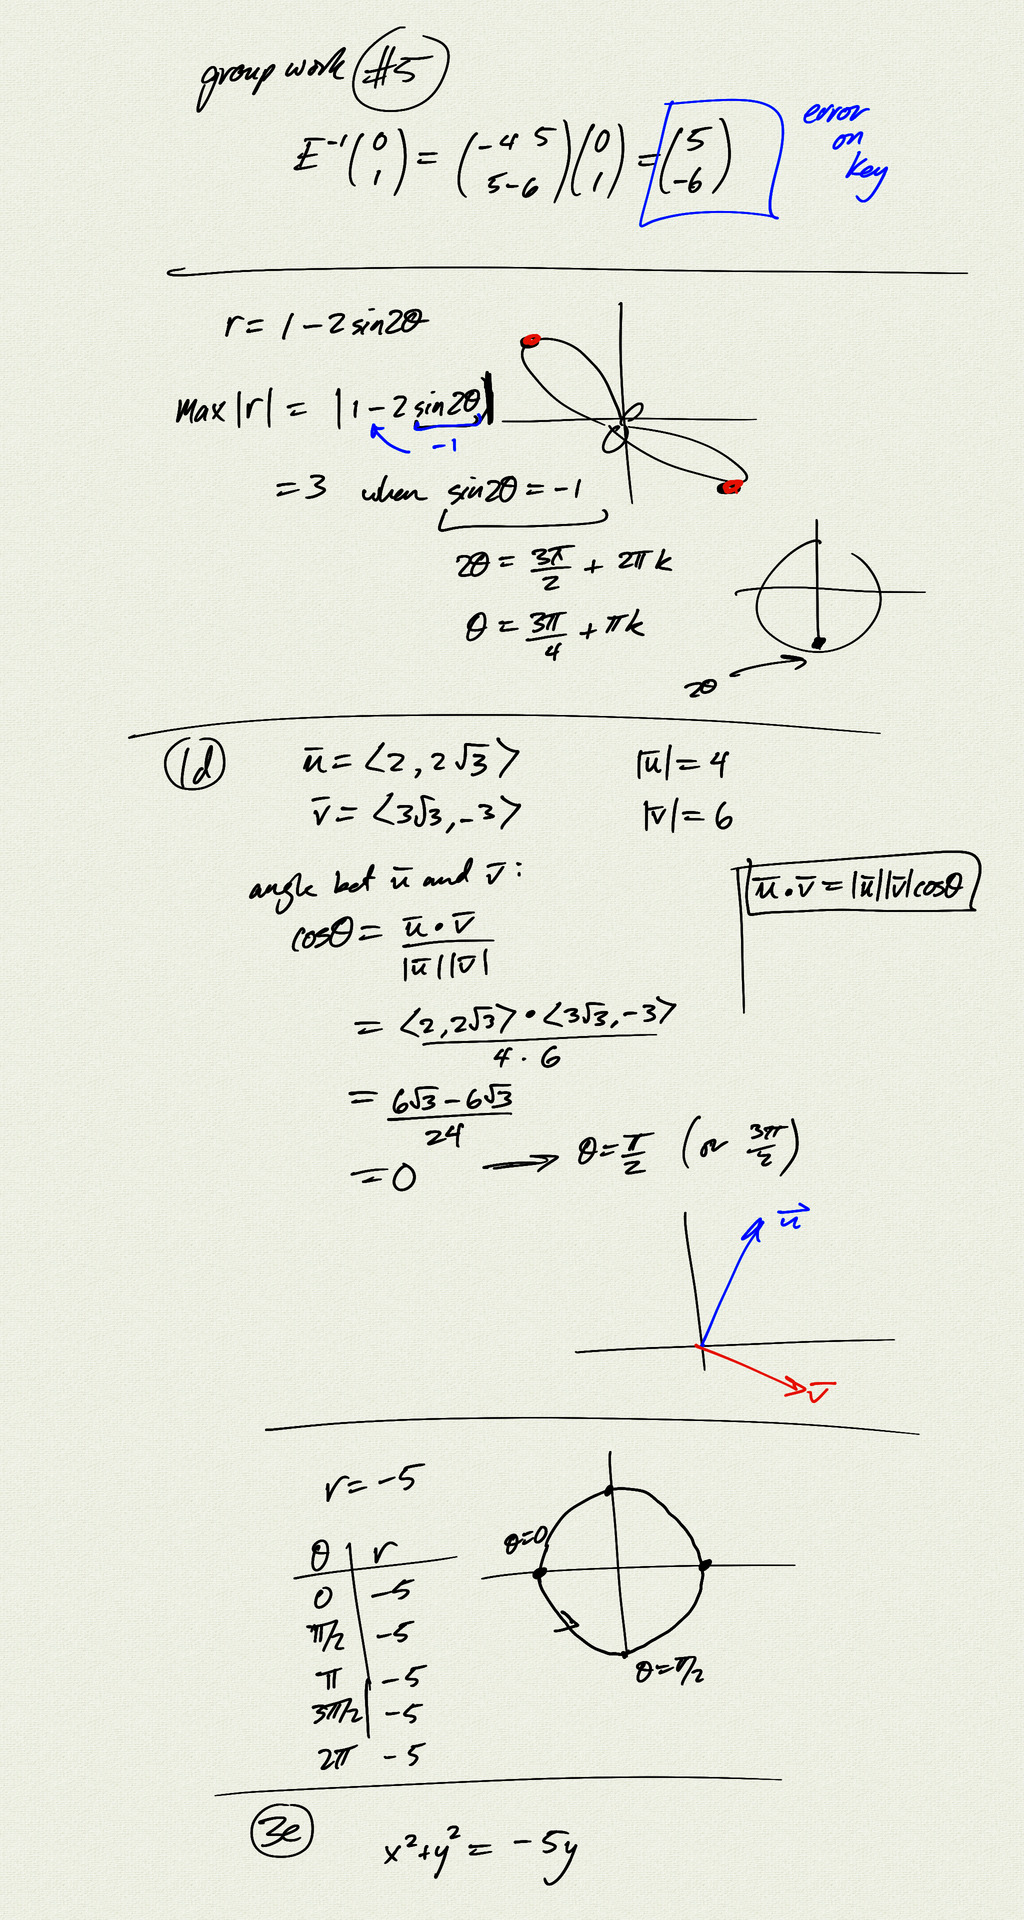 group work #5
E⁻¹(0 1) = (-4 5 5 -6)(0 1) = (5 -6)
error
on
key
r = 1 - 2 sin2θ
max |r| = |1 - 2 sin2θ|
-1
= 3 when sin2θ = -1
2θ = 3π/2 + 2πk
θ = 3π/4 + πk
2θ
1d
ū = <2, 2√3> |ū| = 4
v̄ = <3√3, -3> |v̄| = 6
angle bet ū and v̄:
ū • v̄ = |ū||v̄|cosθ
cosθ = ū • v̄ / |ū||v̄|
= <2, 2√3> • <3√3, -3> / 4 · 6
= 6√3 - 6√3 / 24
= 0 → θ = π/2 (or 3π/2)
u⃗
v̄
r = -5
θ r
0 -5
π/2 -5
π -5
3π/2 -5
2π -5
θ=0
θ=π/2
3e
x² + y² = -5y